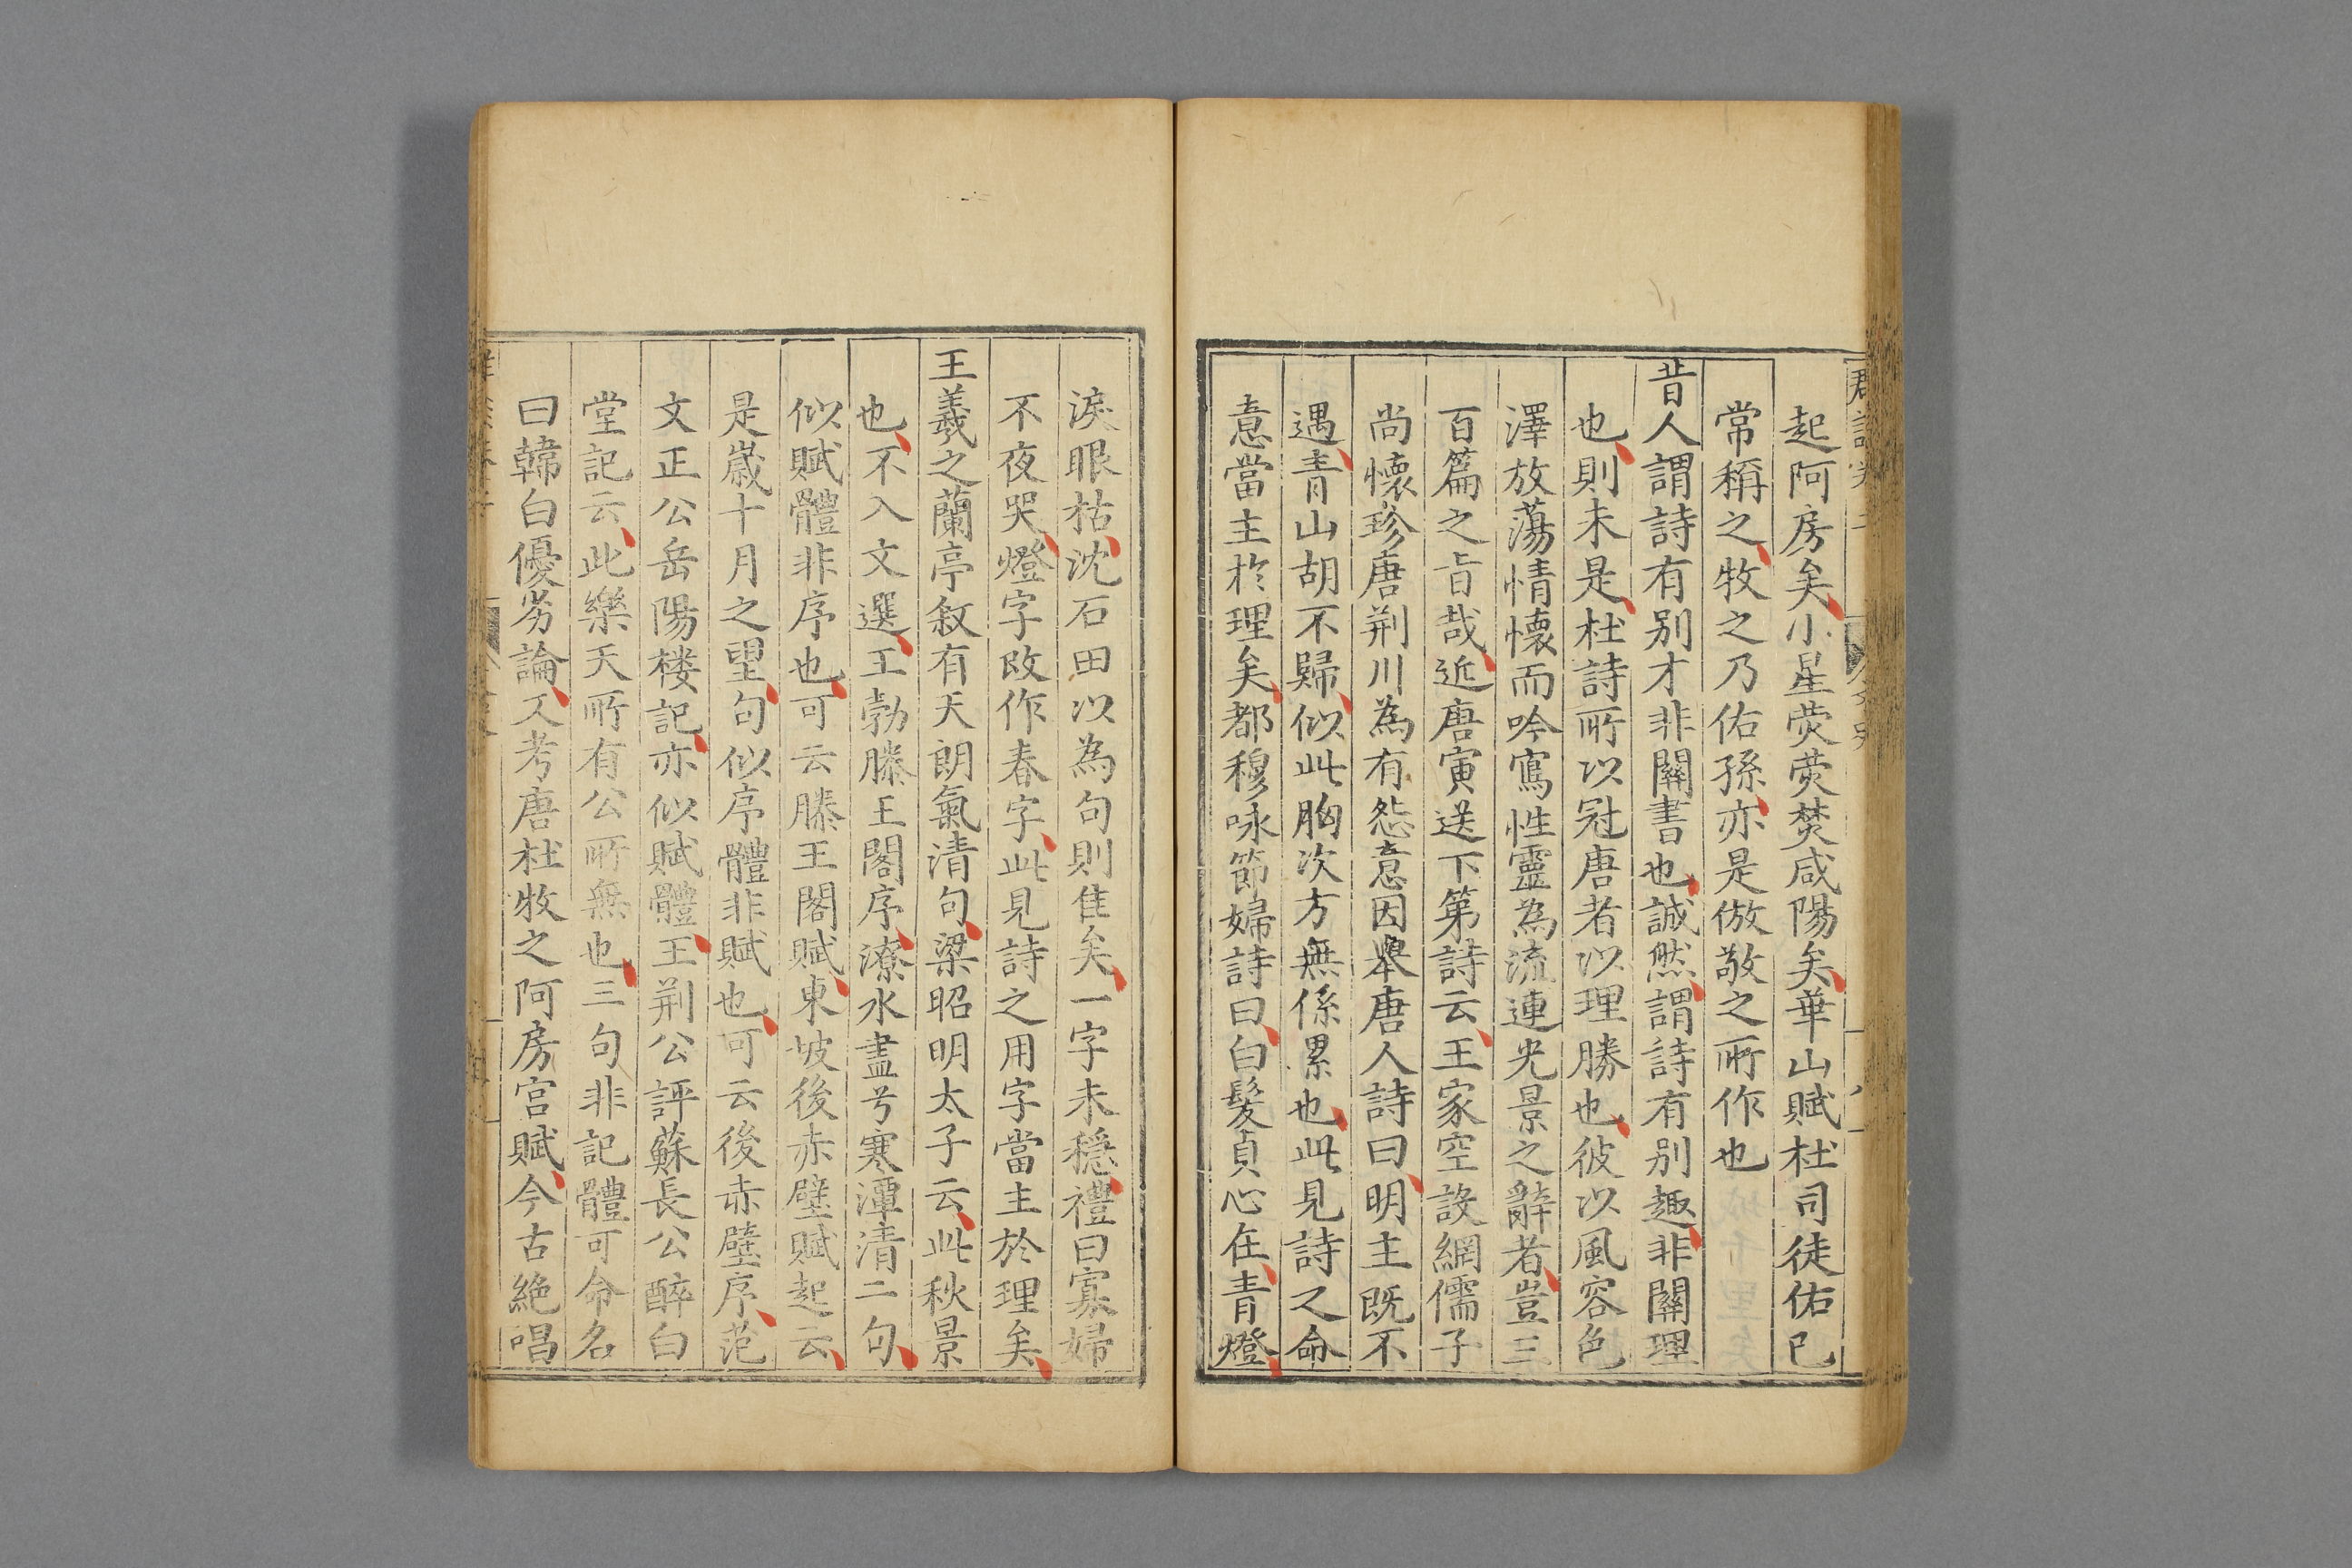 起阿房矣小星荧荧焚咸陽矣華山賦杜司徒佑已
常稱之牧之乃佑孫亦是倣敬之所作也
昔人謂詩有别才非關書也誠然謂詩有别趣非關理
也則未是杜詩所以冠唐者以理勝也彼以風容色
澤放蕩情懷而吟寫性靈為流連光景之辭者豈三
百篇之旨哉近唐寅送下第詩云王家空設網儒子
尚懷珍唐荆川為有怨意因舉唐人詩曰明主既不
遇青山胡不歸似此胸次方無係累也此見詩之命
意當主於理矣都穆咏節婦詩曰白髮貞心在青燈
淚眼枯沈石田以為句則佳矣一字未穩禮曰寡婦
不夜哭燈字改作春字此見詩之用字當主於理矣
王羲之蘭亭敘有天朗氣清句梁昭明太子云此秋景
也不入文選王勃滕王閣序潦水盡兮寒潭清二句
似賦體非序也可云滕王閣賦東坡後赤壁賦起云
是歲十月之望句似序體非賦也可云後赤壁序范
文正公岳陽楼記亦似賦體王荆公評蘇長公醉白
堂記云此樂天所有公所無也三句非記體可命名
曰韓白優劣論又考唐杜牧之阿房宫賦今古絶唱